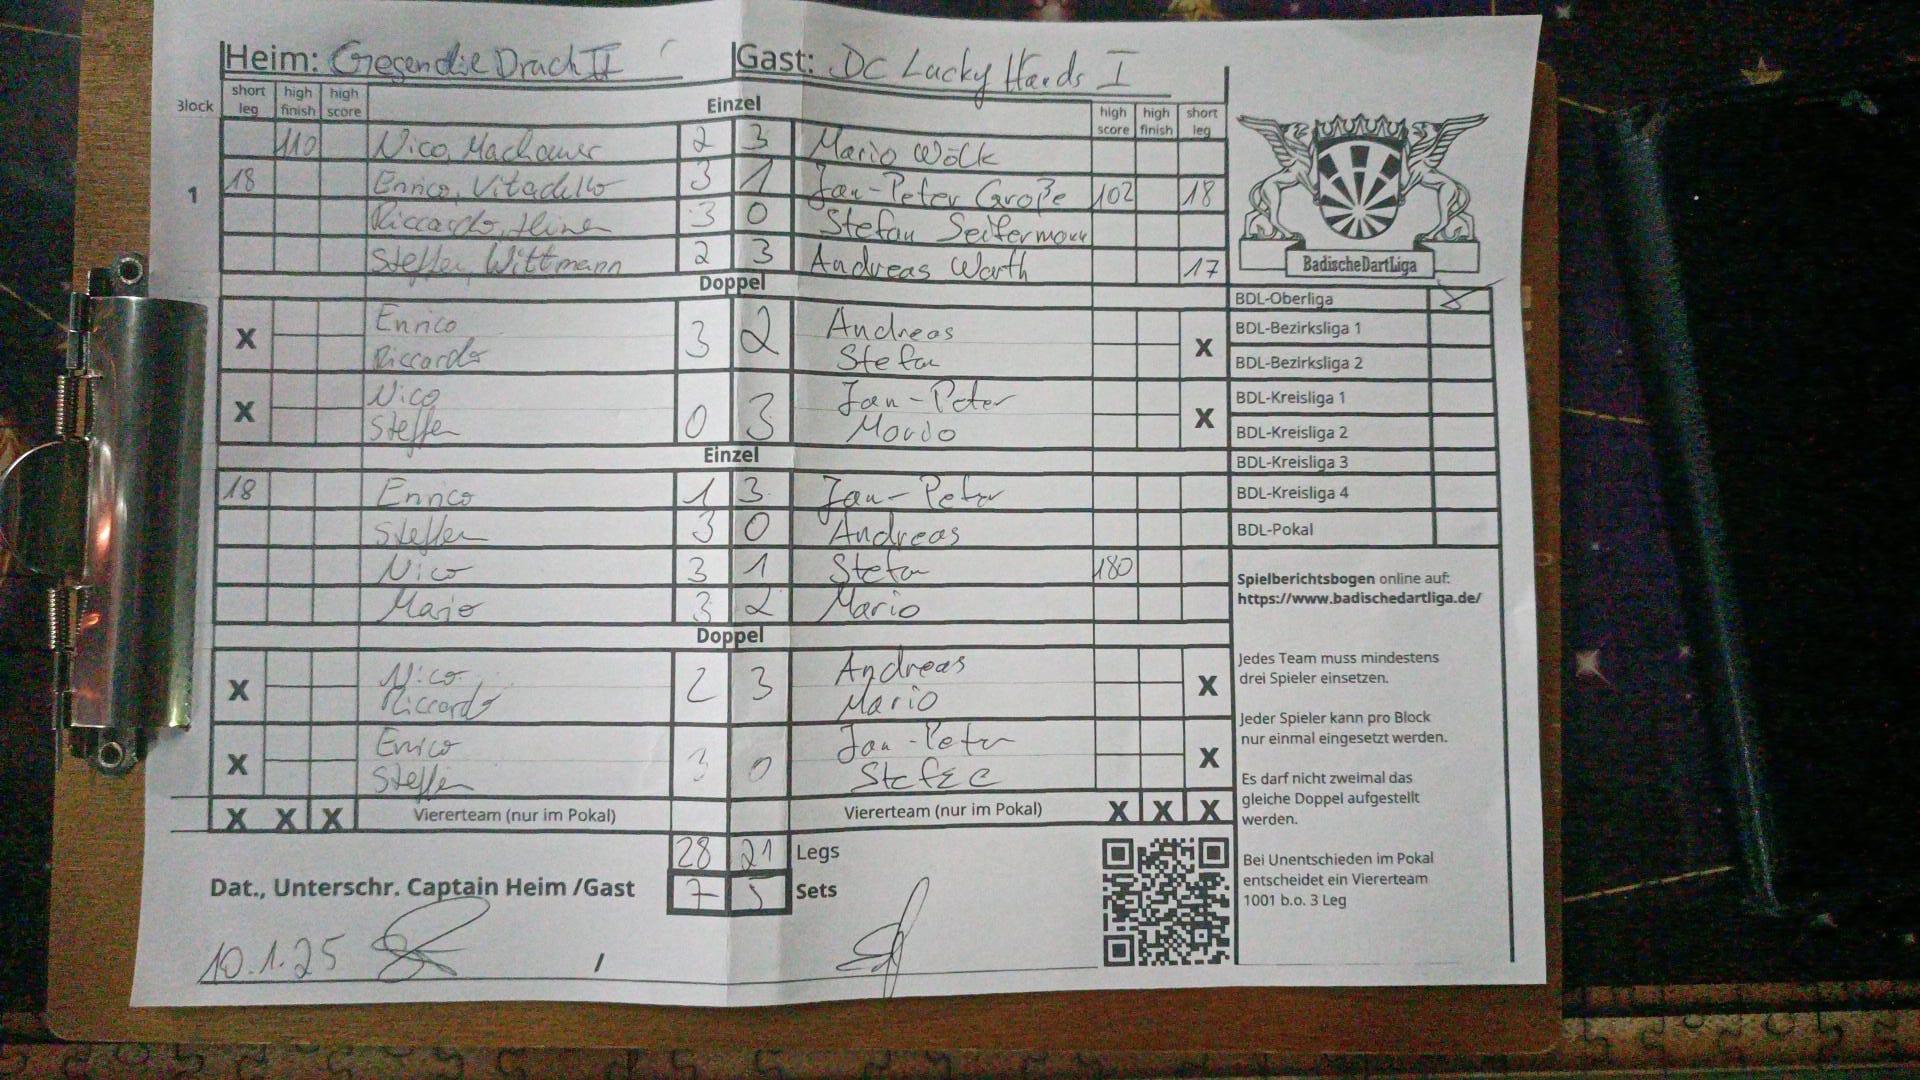 Heim: Gegen die Drach II Gast: DC Lucky Hands I
Block short leg high finish high score Einzel high score high finish short leg
110 Nico, Machauer 2 3 Mario Wölk
1 18 Enrico, Vitadello 3 1 Jan-Peter Große 102 18
Riccardo, 3 0 Stefan Seifermann
Steffen, Wittmann 2 3 Andreas Warth 17
Doppel
X Enrico Riccardo 3 2 Andreas Stefan X
X Nico Steffen 0 3 Jan-Peter Mario X
Einzel
18 Enrico 1 3 Jan-Peter
Steffen 3 0 Andreas
Nico 3 1 Stefan 180
Mario 3 2 Mario
Doppel
X Nico Riccardo 2 3 Andreas Mario X
X Enrico Steffen 3 0 Jan-Peter X
X X X Viererteam (nur im Pokal) Viererteam (nur im Pokal) X X X
28 21 Legs
Dat., Unterschr. Captain Heim /Gast 7 5 Sets
10.1.25
BadischeDartLiga
BDL-Oberliga X
BDL-Bezirksliga 1
BDL-Bezirksliga 2
BDL-Kreisliga 1
BDL-Kreisliga 2
BDL-Kreisliga 3
BDL-Kreisliga 4
BDL-Pokal
Spielberichtsbogen online auf:
https://www.badischedartliga.de/
Jedes Team muss mindestens
drei Spieler einsetzen.
Jeder Spieler kann pro Block
nur einmal eingesetzt werden.
Es darf nicht zweimal das
gleiche Doppel aufgestellt
werden.
Bei Unentschieden im Pokal
entscheidet ein Viererteam
1001 b.o. 3 Leg